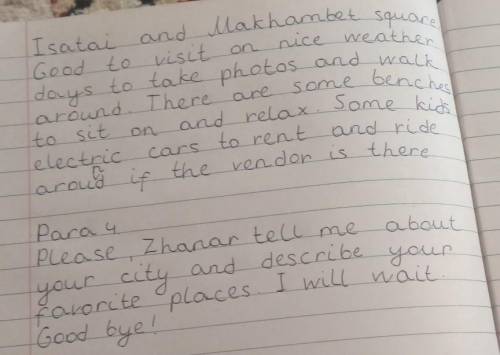 Isatai and Makhambet square
Good to visit on nice weather
days to take photos and walk
around. There are some benches
to sit on and relax. Some kids
electric cars to rent and ride
around if the vendor is there
Para 4
Please, Zhanar tell me about
your city and describe your
favorite places I will wait.
Good bye!